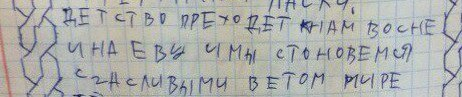 ДЕТСТВО ПРЕХОДЕТ КНАМ ВОСНЕ
ИНАЕВУ ИМЫ СТОНОВЕМСЯ
СЧАСЛИВЫМИ ВЕТОМ МИРЕ